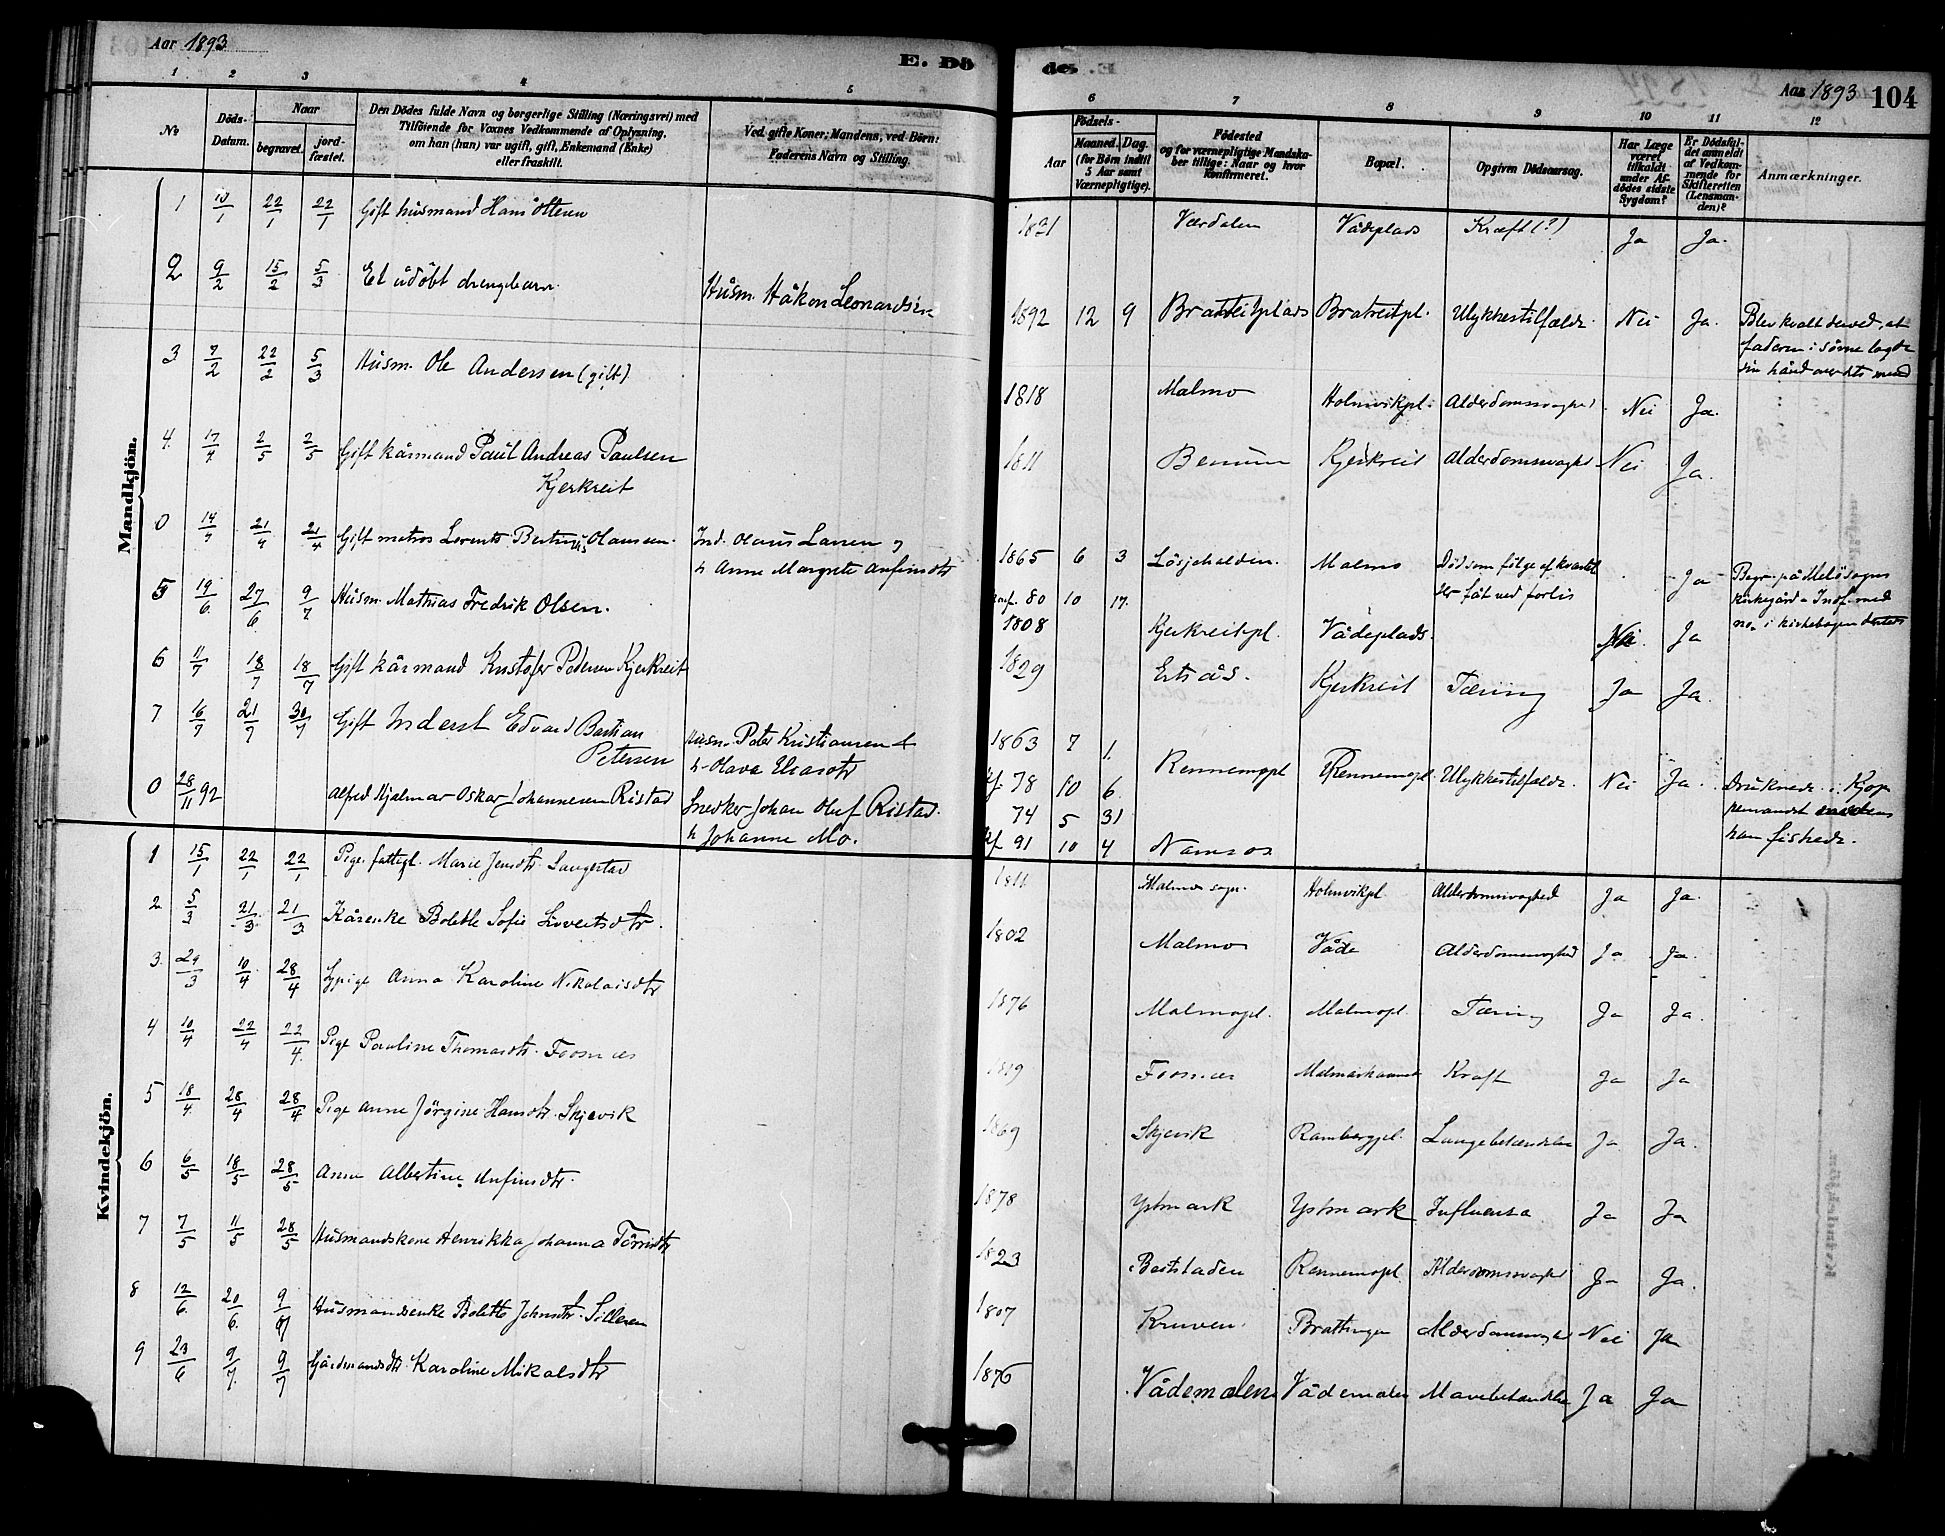 Aar 1893
E. Dö
1 2 3 4 5
No
Döds-Datum.
Naar
begravet. jordfæstet.
Den Dödes fulde Navn og borgerlige Stilling (Næringsvei) med
Tilföiende for Voxnes Vedkommende af Oplysning,
om han (hun) var ugift, gift, Enkemand (Enke)
eller fraskilt.
Ved gifte Koner: Mandens, ved Börn:
Faderens Navn og Stilling.
Mandkjön.
1 22/1 22/1 Gift husmand Hans Oltesen
2 9/2 15/2 5/3 Et udöbt drengebarn. Husm. Håkon Leonardsen
3 7/2 22/2 5/3 Husm. Ole Andersen (gift)
4. 17/4 2/5 2/5 Gift kårmand Paul Andreas Paulsen
Kjerkreit
0 14/4 21/4 21/4 Gift matros Lorents Bertinus Olausen. Ind. Olaus Larsen og
h. Anne Margrete Anfinsdtr
5 19/6 27/6 9/7 Husm. Mathias Fredrik Olsen.
6 11/7 18/7 18/7 Gift kårmand Kristofer Pedersen Kjerkreit
7 16/7 21/7 30/7 Gift Inderst Edvard Bastian
Petersen Husm. Peter Kristiansen &
h. Olava Eliasdtr
0 28/11 92 Alfred Hjalmar Oskar Johannesen Ristad Snedker Johan Oluf Ristad.
h Johanne Mo.
Kvindekjön.
1 15/1 22/1 22/1 Pige fattigl. Marie Jensdtr. Langestad
2. 5/3 21/3 21/3 Kårenke Bolette Sofie Sivertsdtr.
3. 29/3 10/4 28/4 Pige Anna Karoline Nikolaisdtr
4 10/4 22/4 22/4 Pige Pauline Thomasdtr. Fosnæs
5 18/4 28/4 28/4 Pige Anne Jörgine Hansdtr. Skjevik
6 6/5 18/5 28/5 Anna Albertine Anfinsdtr.
7 7/5 11/5 28/5 Husmandskone Henrikka Johanna Törrisdtr
8 12/6 20/6 9/7 Husmandsenke Bolette Johnsdtr.
9 23/6 9/7 9/7 Gårdmandsdtr. Karoline Mikalsdtr
de.
Aar 1893 104
6 7 8 9 10 11 12
Födsels-
Aar Maaned. Dag.
(for Börn indtil
5 Aar samt
Værnepligtige).
Födested
og for værnepligtige Mandska-
ber tillige: Naar og hvor
konfirmeret.
Bopæl.
Opgiven Dödsaarsag.
Har Læge
været
tilkaldt
under Af-
dödes sidste
Sygdom?
Er Dödsfal-
det anmeldt
af Vedkom-
mende for
Skifteretten
(Lensman-
den)?
Anmærkninger.
1821 Værdalen Vådeplads Kræft (?) Ja Ja.
1892 12 9 Bratreitplads Bratreitpl. Ulykkestilfælde. Nei Ja. Blev kvalt derved, at
faderen i sövne lagde
sin hånd over dets mund
1818 Malmo Holmvikpl. Alderdomssvaghed Nei Ja.
1811 Benum Kjerkreit Alderdomssvaghed Nei Ja.
1865 6 3 Malmo Död som fölge af
der fåt ved forlis Ja Begr. på Melö sogns
kirkegård. Indf. med
no. i kirkebogen dersteds
konf. 80 10 17.
1808 Kjerkreitpl. Vådeplads. Nei Ja
1829 Kjerkreit Tæring Ja Ja.
1863 7 1. Rennemspl Rennemspl. Ulykkestilfælde. Nei Ja. Druknede i
medens
han fiskede.
kf. 78 10 6.
74 5 31
kf. 91 10 4 Namsos
1811 Malmo sogn. Holmvikpl Alderdomssvaghed Ja Ja.
1802 Malmo Våde Alderdomssvaghed Ja Ja.
1876 Malmopl. Malmopl. Tæring Ja Ja.
1819 Fosnæs Kræft Ja Ja
1869 Skjevik Rambergpl. Lungebetændelse Ja Ja.
1878 Ystmark Ystmark Influensa Ja Ja
1823 Beitstaden Rennemspl Alderdomssvaghed Ja Ja.
1807 Brattingen Alderdomssvaghed Nei Ja
1876 Vådemælen Vådemælen Mavebetændelse Ja Ja